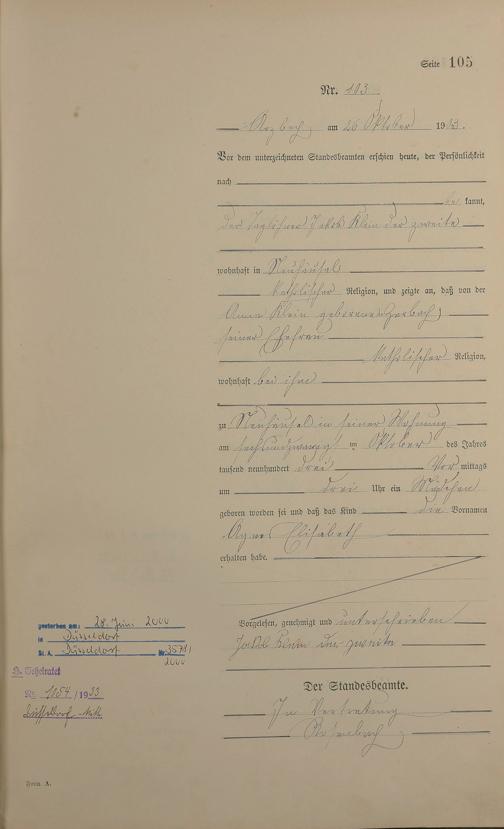 Seite 105
Nr. 103
Arzbach, am 26 Oktober 1903.
Vor dem unterzeichneten Standesbeamten erschien heute, der Persönlichkeit
nach
be kannt,
der Taglöhner Jakob Klein der zweite
wohnhaft in Neuhäusel
katholischer Religion, und zeigte an, daß von der
Anna Klein geborene Gerbach,
seiner Ehefrau
katholischer Religion,
wohnhaft bei ihm
zu Neuhäusel in seiner Wohnung
am sechsundzwanzigsten Oktober des Jahres
tausend neunhundert drei Vor mittags
um drei Uhr ein Mädchen
geboren worden sei und daß das Kind die Vornamen
Agnes Elisabeth
erhalten habe.
Vorgelesen, genehmigt und unterschrieben
Jakob Klein der zweite
Der Standesbeamte.
In Vertretung
gestorben am: 28. Juni 2000
in Düsseldorf
St. A. Düsseldorf Nr. 3578/
2000
Geheiratet
Nr. 1054/1933
Düsseldorf-Mitte
Form A.